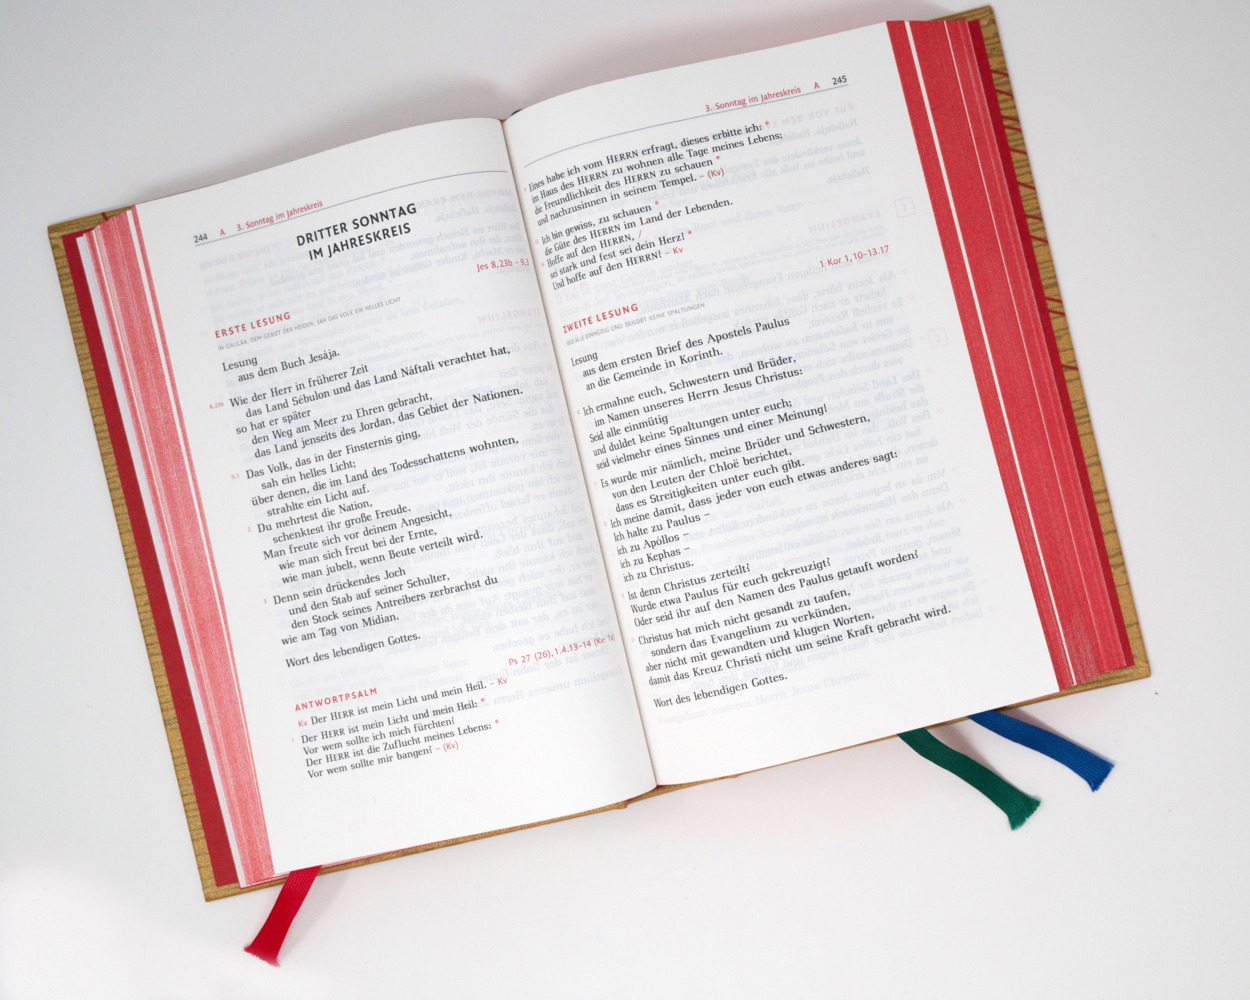 244 A 3. Sonntag im Jahreskreis
DRITTER SONNTAG
IM JAHRESKREIS
Jes 8,23b – 9,3
ERSTE LESUNG
IN GALILÄA, DEM GEBIET DER HEIDEN, SAH DAS VOLK EIN HELLES LICHT
Lesung
aus dem Buch Jesája.
8,23b Wie der Herr in früherer Zeit
das Land Sébulon und das Land Náftali verachtet hat,
so hat er später
den Weg am Meer zu Ehren gebracht,
das Land jenseits des Jordan, das Gebiet der Nationen.
9,1 Das Volk, das in der Finsternis ging,
sah ein helles Licht;
über denen, die im Land des Todesschattens wohnten,
strahlte ein Licht auf.
2 Du mehrtest die Nation,
schenktest ihr große Freude.
Man freute sich vor deinem Angesicht,
wie man sich freut bei der Ernte,
wie man jubelt, wenn Beute verteilt wird.
3 Denn sein drückendes Joch
und den Stab auf seiner Schulter,
den Stock seines Antreibers zerbrachst du
wie am Tag von Midian.
Wort des lebendigen Gottes.
Ps 27 (26), 1.4.13–14 (Kv: 1a)
ANTWORTPSALM
Kv Der HERR ist mein Licht und mein Heil. – Kv
1 Der HERR ist mein Licht und mein Heil: *
Vor wem sollte ich mich fürchten?
Der HERR ist die Zuflucht meines Lebens: *
Vor wem sollte mir bangen? – (Kv)
3. Sonntag im Jahreskreis A 245
Eines habe ich vom HERRN erfragt, dieses erbitte ich: *
im Haus des HERRN zu wohnen alle Tage meines Lebens;
die Freundlichkeit des HERRN zu schauen *
und nachzusinnen in seinem Tempel. – (Kv)
Ich bin gewiss, zu schauen *
die Güte des HERRN im Land der Lebenden.
Hoffe auf den HERRN, /
sei stark und fest sei dein Herz! *
Und hoffe auf den HERRN! – Kv
1 Kor 1, 10–13.17
ZWEITE LESUNG
SEID ALLE EINMÜTIG UND DULDET KEINE SPALTUNGEN
Lesung
aus dem ersten Brief des Apostels Paulus
an die Gemeinde in Korinth.
Ich ermahne euch, Schwestern und Brüder,
im Namen unseres Herrn Jesus Christus:
Seid alle einmütig
und duldet keine Spaltungen unter euch;
seid vielmehr eines Sinnes und einer Meinung!
Es wurde mir nämlich, meine Brüder und Schwestern,
von den Leuten der Chloë berichtet,
dass es Streitigkeiten unter euch gibt.
Ich meine damit, dass jeder von euch etwas anderes sagt:
Ich halte zu Paulus –
ich zu Apóllos –
ich zu Kephas –
ich zu Christus.
Ist denn Christus zerteilt?
Wurde etwa Paulus für euch gekreuzigt?
Oder seid ihr auf den Namen des Paulus getauft worden?
Christus hat mich nicht gesandt zu taufen,
sondern das Evangelium zu verkünden,
aber nicht mit gewandten und klugen Worten,
damit das Kreuz Christi nicht um seine Kraft gebracht wird.
Wort des lebendigen Gottes.